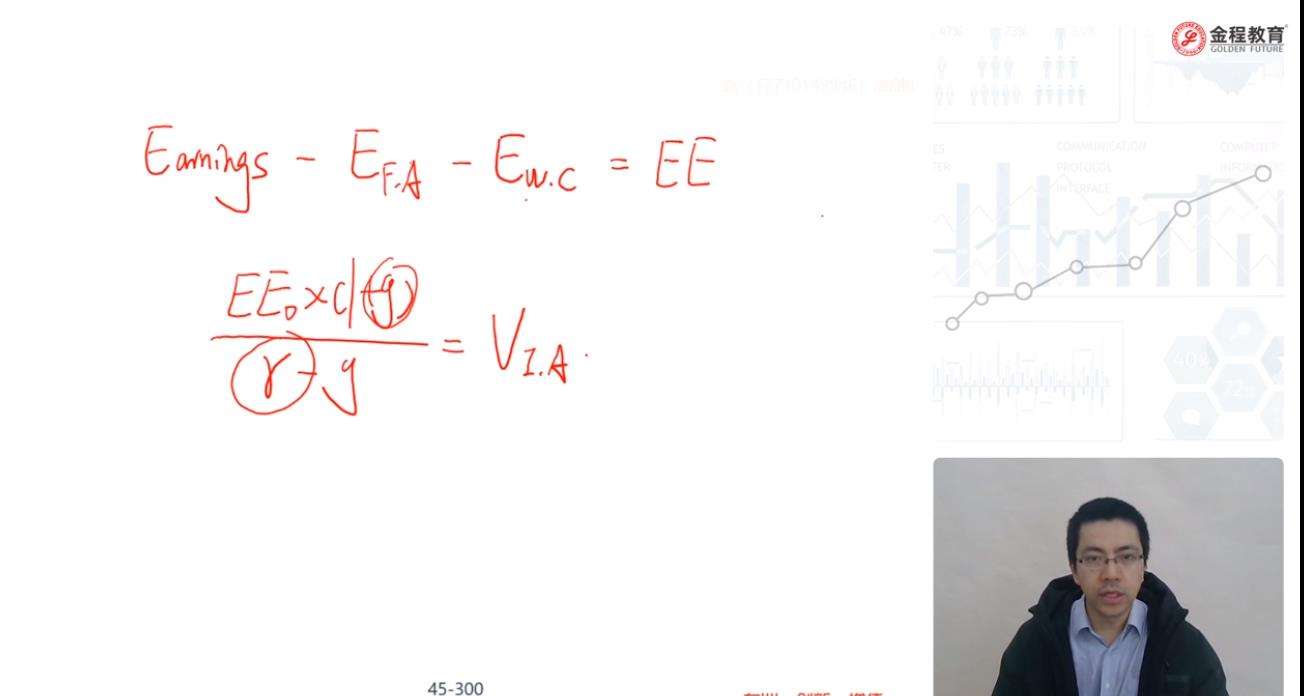 金程教育
GOLDEN FUTURE
Earnings - E_F.A - E_W.C = EE
EE₀×(1+g)
r-g
= V_I.A.
COMMUNICATION
PROTOCOL
INTERFACE
COMPUTER
40%
72%
45-300